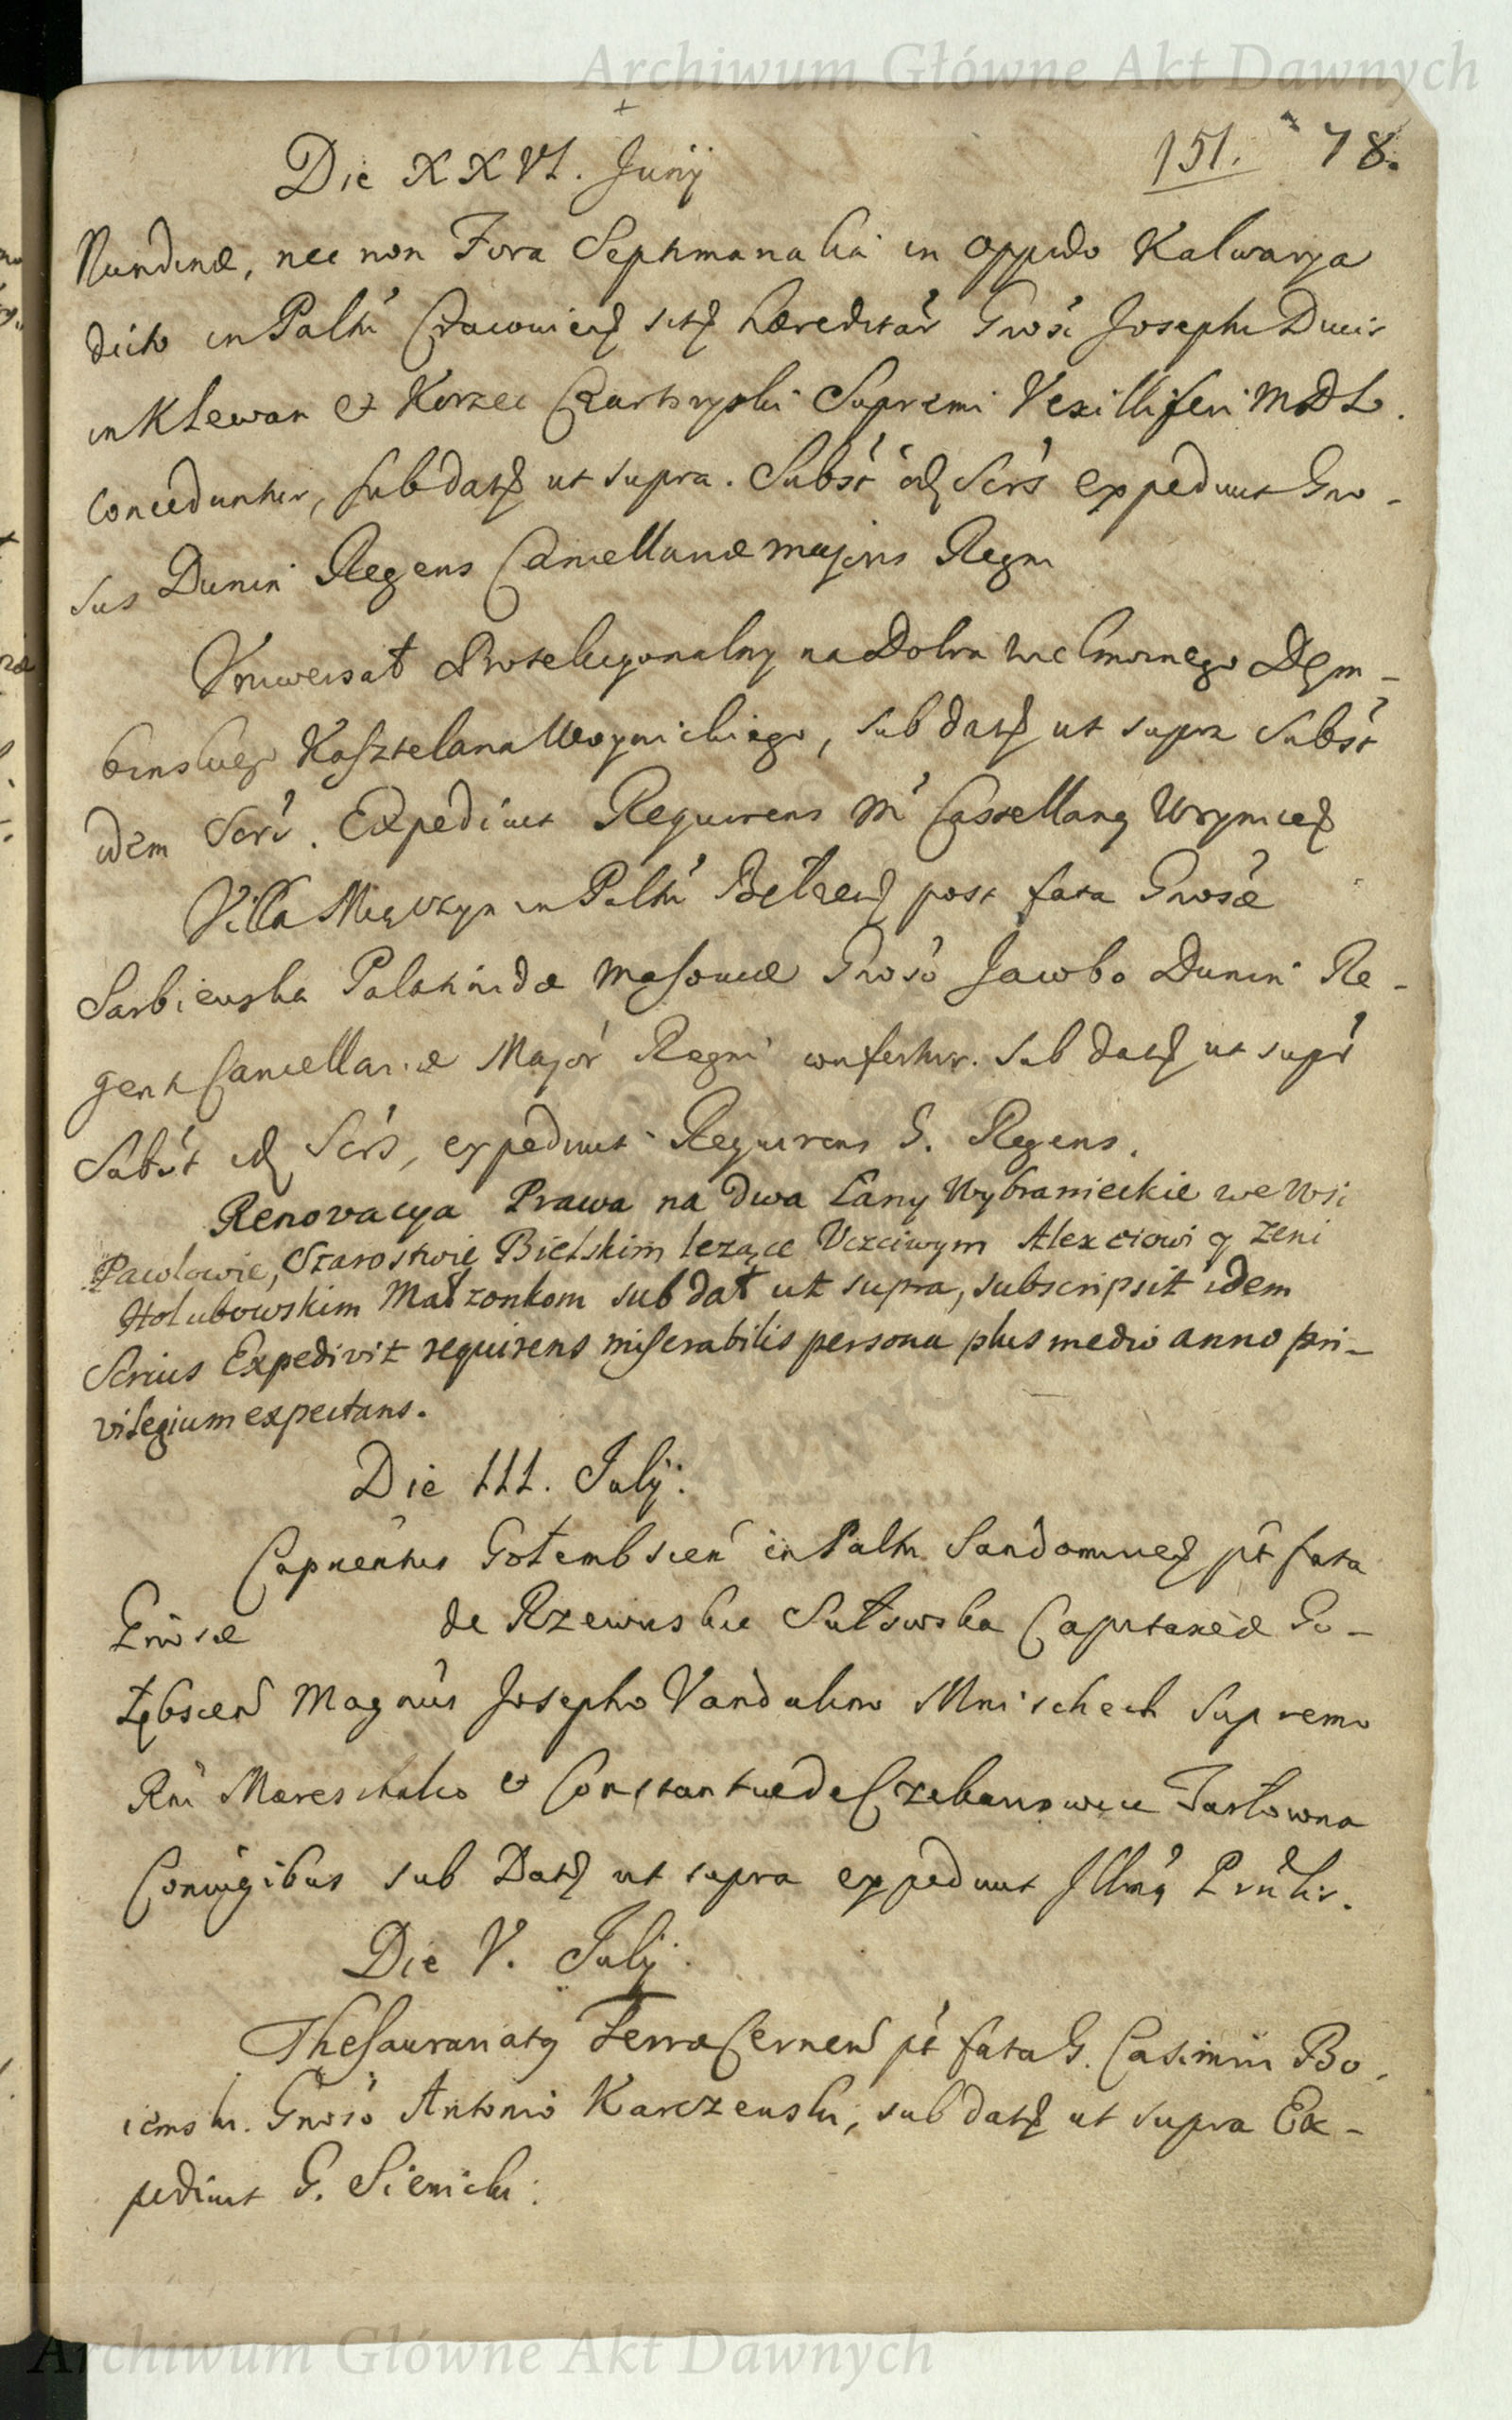 Archiwum Główne Akt Dawnych
151. 78.
Die XXVI. Junij
Nundinæ, nec non Fora Septimanalia in oppido Kalwarya
dicto in Paltu Cracovien sits hæreditar Gnosi Josephi Ducis
in Klewan et Korzec Czartoryski Supremi Vexilliferi MDL.
conceduntur, sub dats ut supra. Subst id Scrs expedivit Gno-
sus Dunin Regens Cancellariæ majoris Regni
Uniwersał Protekcyonalny na Dobra Wielmoznego Dęm-
binskiego Kasztelana Woynickiego, sub dats ut supra Subst
idem Scri. Expedivit Requirens M Castellanq Woyniceń
Villa Miączyn in Paltu Bełzen post fata Gnosæ
Sarbiewska Palatinidæ Masoviæ Gnoso Jacobo Dunin Re-
genti Cancellariæ Major Regni confertur. Sub dats ut supr
Subst id Scrs, expedivit Requirens G. Regens.
Renovacya Prawa na dwa Łany Wybranieckie we Wsi
Pawlowie, Starostwie Bielskim leząće Uczciwym Alexiowi y Zeni
Holubowskim Małzonkom sub dat ut supra, subscripsit idem
Scrius Expedivit requirens miserabilis persona plus medio anno pri-
vilegium expectans.
Die III. Julij:
Capneatus Gołembscen in Paltu Sandomiren pt fata
Gnosæ de Rzewuskie Sułowska Capitaneæ Go-
łębscen Magnus Josepho Vandalino Mniszchech Supremo
Rni Mareschalco et Constantiæ de Tarłowna
Coniugibus sub Dats ut supra expedivit Illmq
Die V. Julij.
Thesaurariatq Terræ Cernen pt fata G. Casimiri Bo-
iemski. Gnoso Antonio Karczewski, sub dats ut supra Ex-
pedivit G. Sienicki.
Archiwum Główne Akt Dawnych